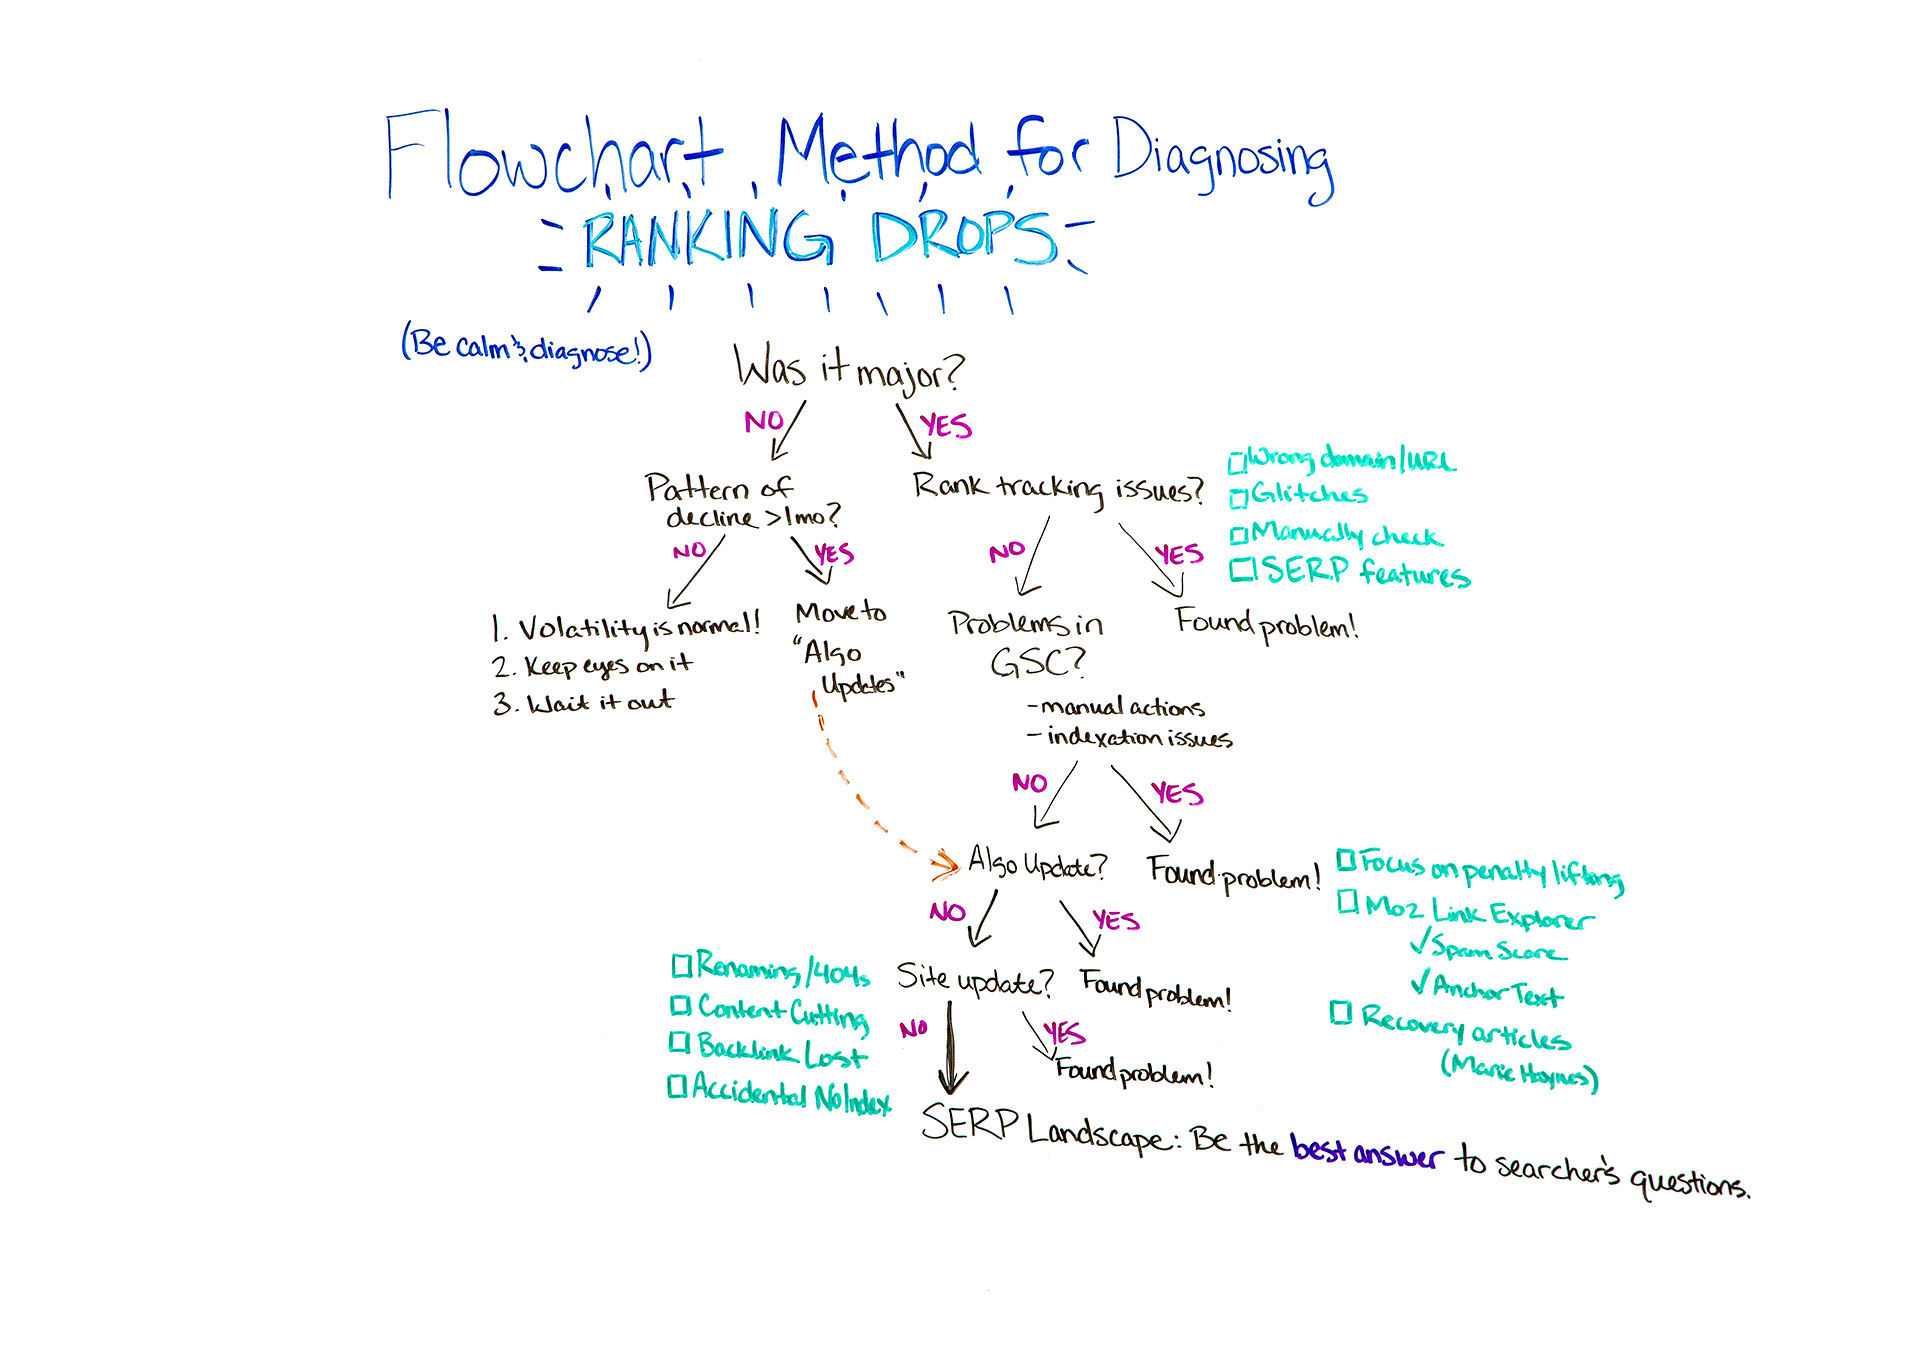 Flowchart Method for Diagnosing
RANKING DROPS
(Be calm & diagnose!)
Was it major?
NO
YES
Pattern of
decline >1mo?
NO
YES
1. Volatility is normal!
2. Keep eyes on it
3. Wait it out
Move to
"Algo
Updates"
Rank tracking issues?
Wrong domain/URL
Glitches
Manually check
SERP features
NO
YES
Problems in
GSC?
- manual actions
- indexation issues
Found problem!
NO
YES
Algo Update?
Found problem!
Focus on penalty lifting
Moz Link Explorer
✓ Spam Score
✓ Anchor Text
Recovery articles
(Marie Haynes)
NO
YES
Site update?
Found problem!
Renaming/404s
Content Cutting
Backlink Lost
Accidental NoIndex
NO
YES
Found problem!
SERP Landscape: Be the best answer to searcher's questions.